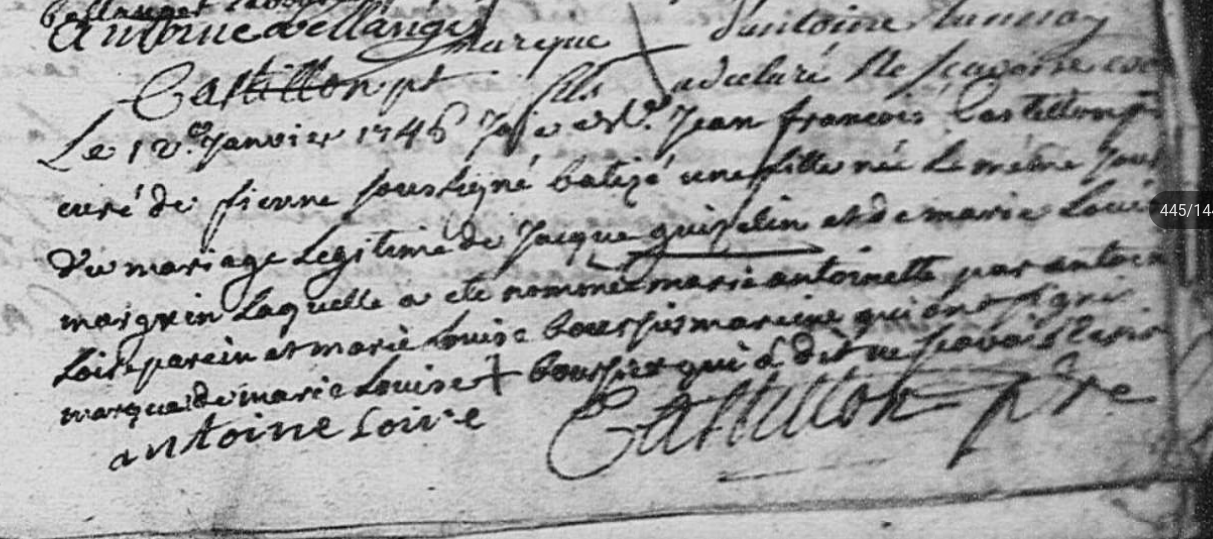 antoine bellanger
marque d'antoine
Castillon pt fils a declaré ne scavoir
Le 12e Janvier 1746 Je Jean francois Castillon
curé de fienne soussigné batizé une fille née le même Jour
du mariage Legitime de Jacque guiselin et de marie Loui
margrin Laquelle a eté nommée marie antoinette par antoin
Loire parein et marie Louise boussier mareine qui ont signé
marque de marie Louise + boussier qui a dit ne scavoir
antoine Loire Castillon ptre
445/144